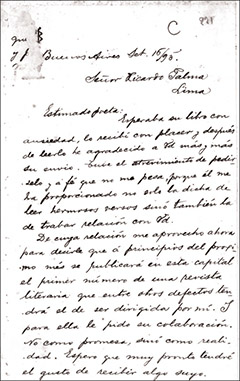 C
Buenos Aires Set. 15/95.
Señor Ricardo Palma
Lima
Estimado poeta:
Esperaba su libro con
ansiedad, lo recibí con placer y después
de leerlo he agradecido á Vd más y más
su envío. Tuve el atrevimiento de pedír
selo y á fé que no me pesa, porque él me
ha proporcionado no solo la dicha de
leer hermosos versos sinó también la
de trabar relación con Vd.
De cuya relación me aprovecho ahora
para decirle que á principios del próxi
mo mes se publicará en esta capital
el primer número de una revista
literaria que entre otros defectos ten
drá el de ser dirigida por mí. I
para ella le pido su colaboración.
No como promesa, sinó como reali
dad. Espero que muy pronto tendré
el gusto de recibir algo suyo.